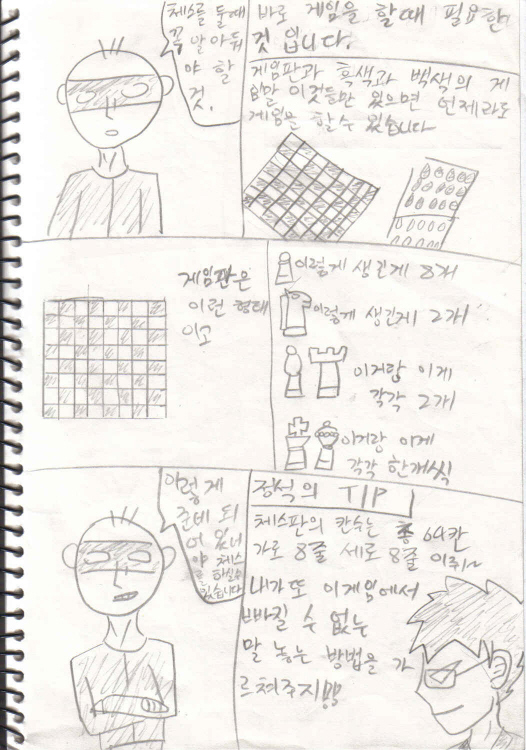 체스를 둘때
꼭 알아둬
야 할
것.
바로 게임을 할때 필요한
것 입니다.
게임판과 흑색과 백색의 게
임말 이것들만 있으면 언제라도
게임을 할수 있습니다
게임판은
이런 형태
이고
이렇게 생긴게 8개
이렇게 생긴게 2개
이거랑 이게
각각 2개
이거랑 이게
각각 한개씩
이렇게
준비 되
어 있어
야 체스
를 하실수
있습니다
정석의 TIP
체스판의 칸수는 총 64칸
가로 8줄 세로 8줄 이쥐~
내가 또 이게임에서
빠질 수 없는
말 놓는 방법을 가
르쳐주지